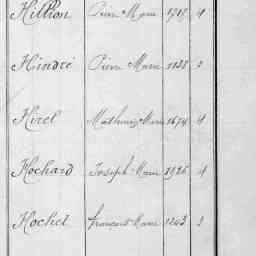 Hillion Pierre Marie 1917 4
Hindré Pierre Marie 1138 3
Hirel Mathurin Marie 1674 4
Hochard Joseph Marie 1926 4
Hochet François Marie 1203 3